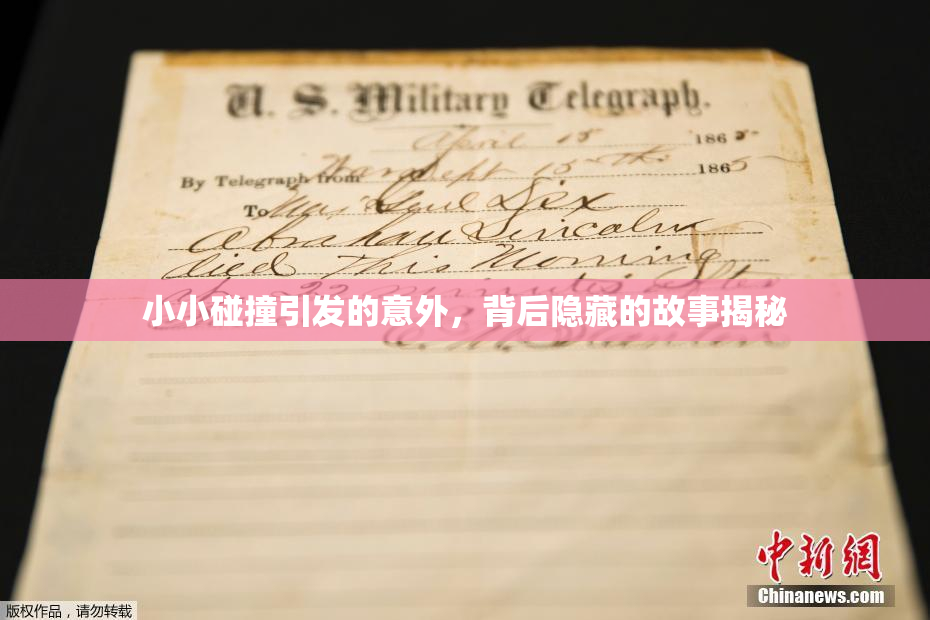 U. S. Military Telegraph.
April 15 1865
By Telegraph from War Dept 15th 1865
To Maj Genl Dix
Abraham Lincoln
died This Morning
22 minutes after
小小碰撞引发的意外，背后隐藏的故事揭秘
E. M. Stanton
中新网
Chinanews.com
版权作品，请勿转载